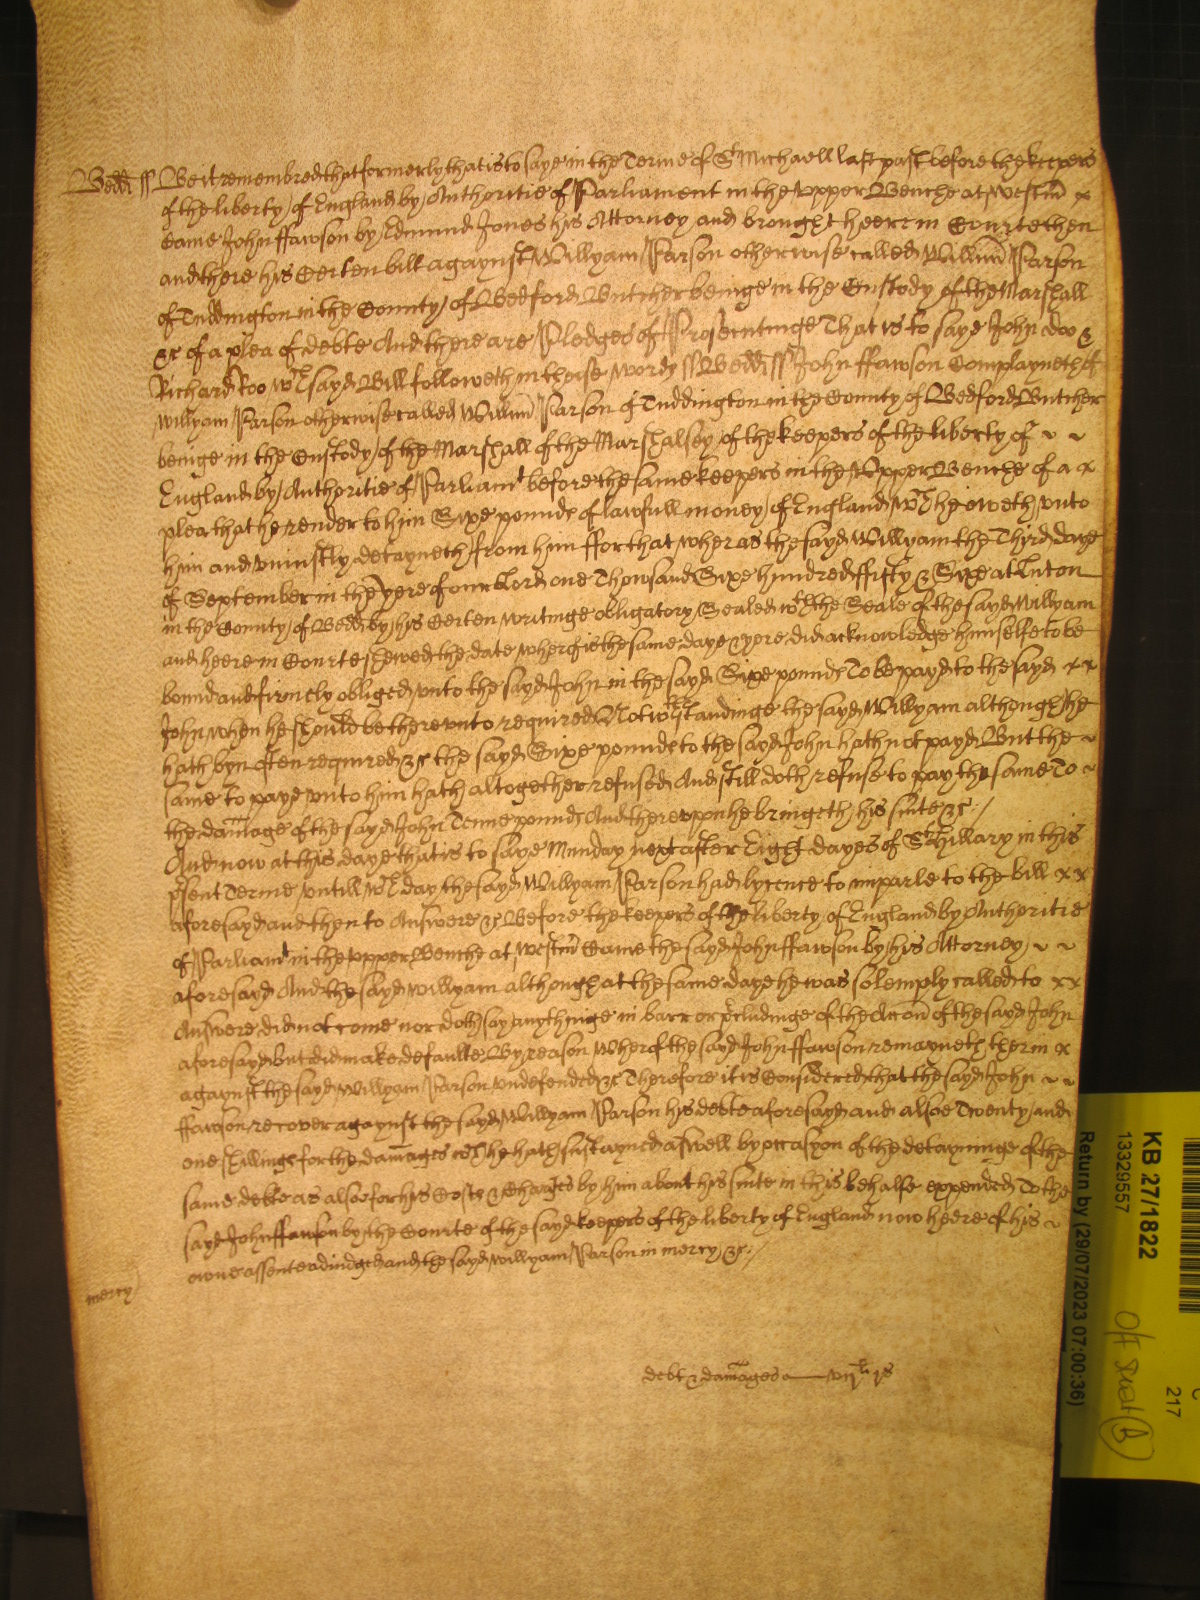 Bedd ss Be it remembred that formerly that is to saye in the Terme of St Michaell last past before the keepers
of the liberty of England by Authoritie of Parliament in the Upper Benche at Westm x
Came John ffawson by Edmund Jones his Attorney and brought heere in Courte then
and there his Certen bill agaynst Willyam Parson otherwise called Willm Parson
of Tuddington in the County of Bedford Butcher beinge in the Custody of the Marshall
&c of a plea of debte And there are Pledges of Prosecutinge That is to saye John doo &
Richard Roo wch sayd Bill followeth in theise words ss Bedd ss John ffawson Complayneth of
Willyam Parson otherwise called Willm Parson of Tuddington in the County of Bedford Butcher
beinge in the Custody of the Marshall of the Marshalsey of the keepers of the liberty of ~ ~
England by Authoritie of Parliamt before the same keepers in the Upper Benche of a x
plea that he render to him Sixe pounds of lawfull money of England wch he oweth unto
him and uniustly detayneth from him ffor that wheras the sayd Willyam the Third daye
of September in the yere of our Lord one Thousand Sixe hundred ffifty & Sixe at Luton
in the County of Bedd by his Certen writinge obligatory Sealed wth the Seale of the sayd Willyam
and heere in Courte shewed the date wherof is the same daye & yere did acknowledge himselfe to be
bound and firmely obliged unto the sayd John in the sayd Sixe pounds To be payd to the sayd x x
John when he should be thereunto required Notwthstandinge the sayd Willyam although he
hath byn often required &c the sayd Sixe pounds to the sayd John hath not payd But the ~
same to paye unto him hath altogether refused And still doth refuse to pay the same To ~
the damage of the sayd John Tenne pounds And thereupon he bringeth his suite &c /
And now at this daye that is to saye Munday next after Eight dayes of St Hillary in this
psent Terme untill wch day the sayd Willyam Parson had lycence to imparle to the bill x x
aforesayd and then to Answere &c Before the keepers of the liberty of England by Authoritie
of Parliamt in the upper Benche at Westm Came the sayd John ffawson by his Attorney ~ ~
aforesayd And the sayd Willyam although at the same daye he was solemply called to x x
Answere did not come nor doth say anythinge in barr or pcludinge of the Accon of the sayd John
aforesayd but did make defaulte By reason wherof the sayd John ffawson remayneth therin x
agaynst the sayd Willyam Parson undefended &c Therefore it is Considered that the sayd John ~ ~
ffawson recover agaynst the sayd Willyam Parson his debte aforesayd and alsoe Twenty and
one shillinges for the damages wch he hath sustayned aswell by occasyon of the detayninge of the
same debte as alsoe for his Costs & Charges by him about his suite in this behalfe expended To the
sayd John ffawson by the Courte of the sayd keepers of the liberty of England now heere of his ~
owne assente adiudged and the sayd Willyam Parson in mercy &c /
mercy
debt & damages vijli js
KB 27/1822
13329557
Return by (29/07/2023 07:00:36)
217